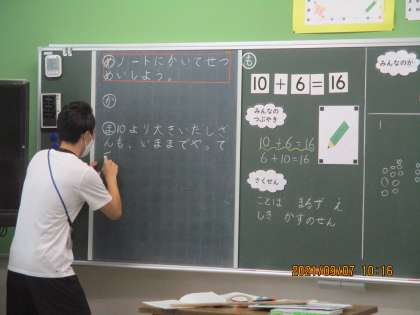 めノートにかいてせつ
めいしよう。
か
ま10より大きいたしざ
んも、いままでやって
も
10+6=16
みんなの
つぶやき
10+6=16
6+10=16
さくせん
ことば まるず え
しき かずのせん
みんなのが
1
2021/09/07 10:16